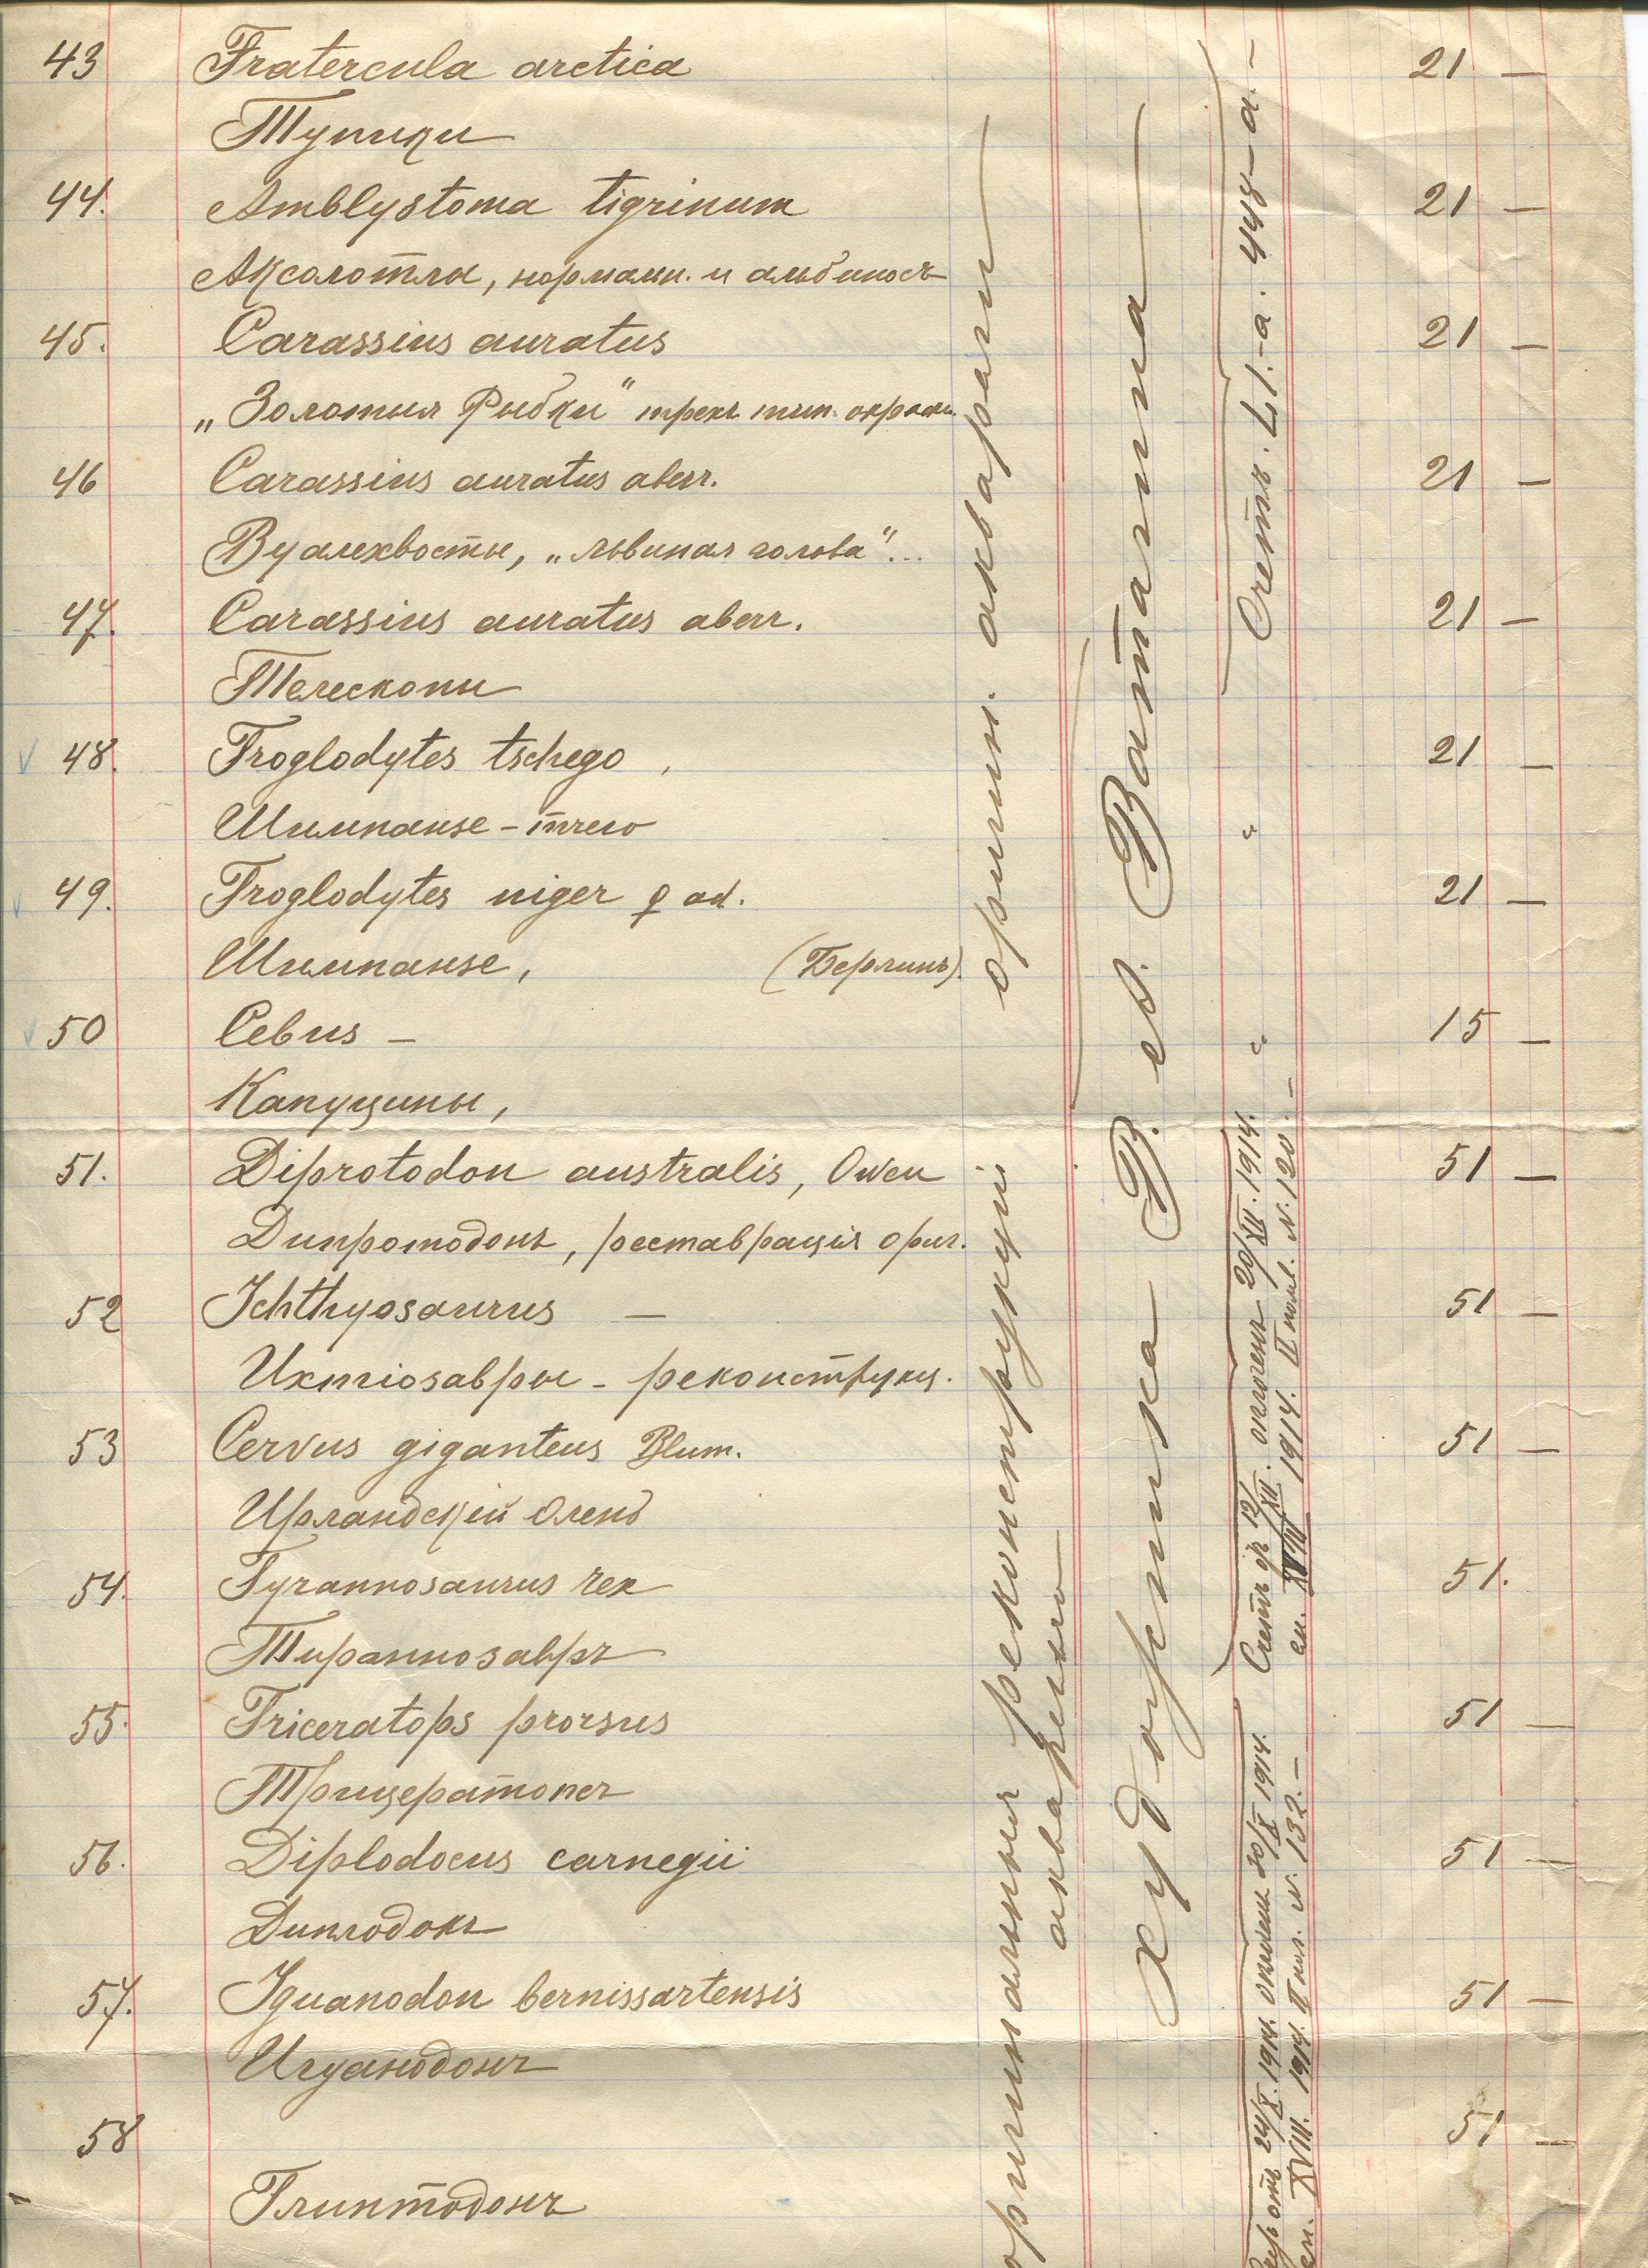 43 Fratercula arctica 21 —
Тупики
44. Amblystoma tigrinum 21 —
Аксолотли, нормальн. и альбиносъ
45. Carassius auratus 21 —
„Золотыя Рыбки“ трехъ тип. окраски
46 Carassius auratus aberr. 21 —
Вуалехвосты, „львиная голова“...
47. Carassius auratus aberr. 21 —
Телескопы
48. Troglodytes tschego, 21 —
Шимпанзе – тчего
49. Troglodytes niger ♀ ad. 21 —
Шимпанзе, (Берлинъ).
50 Cebus – 15 —
Капуцины,
51. Diprotodon australis, Owen 51 —
Дипротодонъ, реставрація ориг.
52 Ichthyosaurus — 51 —
Ихтіозавры – реконструкц.
53 Cervus giganteus Blum. 51 —
Ирландскій Олень
54. Tyrannosaurus rex 51.
Тиранно­завръ
55. Triceratops prorsus 51 —
Трицератопсъ
56. Diplodocus carnegii 51 —
Диплодокъ
57. Iguanodon bernissartensis 51 —
Игуанодонъ
58 51 —
Глиптодонъ
оригин. акварели
оригинальныя реконструкціи
акварелью
художника В. А. Ватагина
Счетъ. L1.–а. 448–а.–
"
"
Счетъ 12/XII. оплоченъ 20/XII. 1914.
см. XVIII 1914. II пол. N. 120.–
отъ 24/X. 1914. 30/X 1914.
см. XVIII. 1914. II пол. N. 132.–